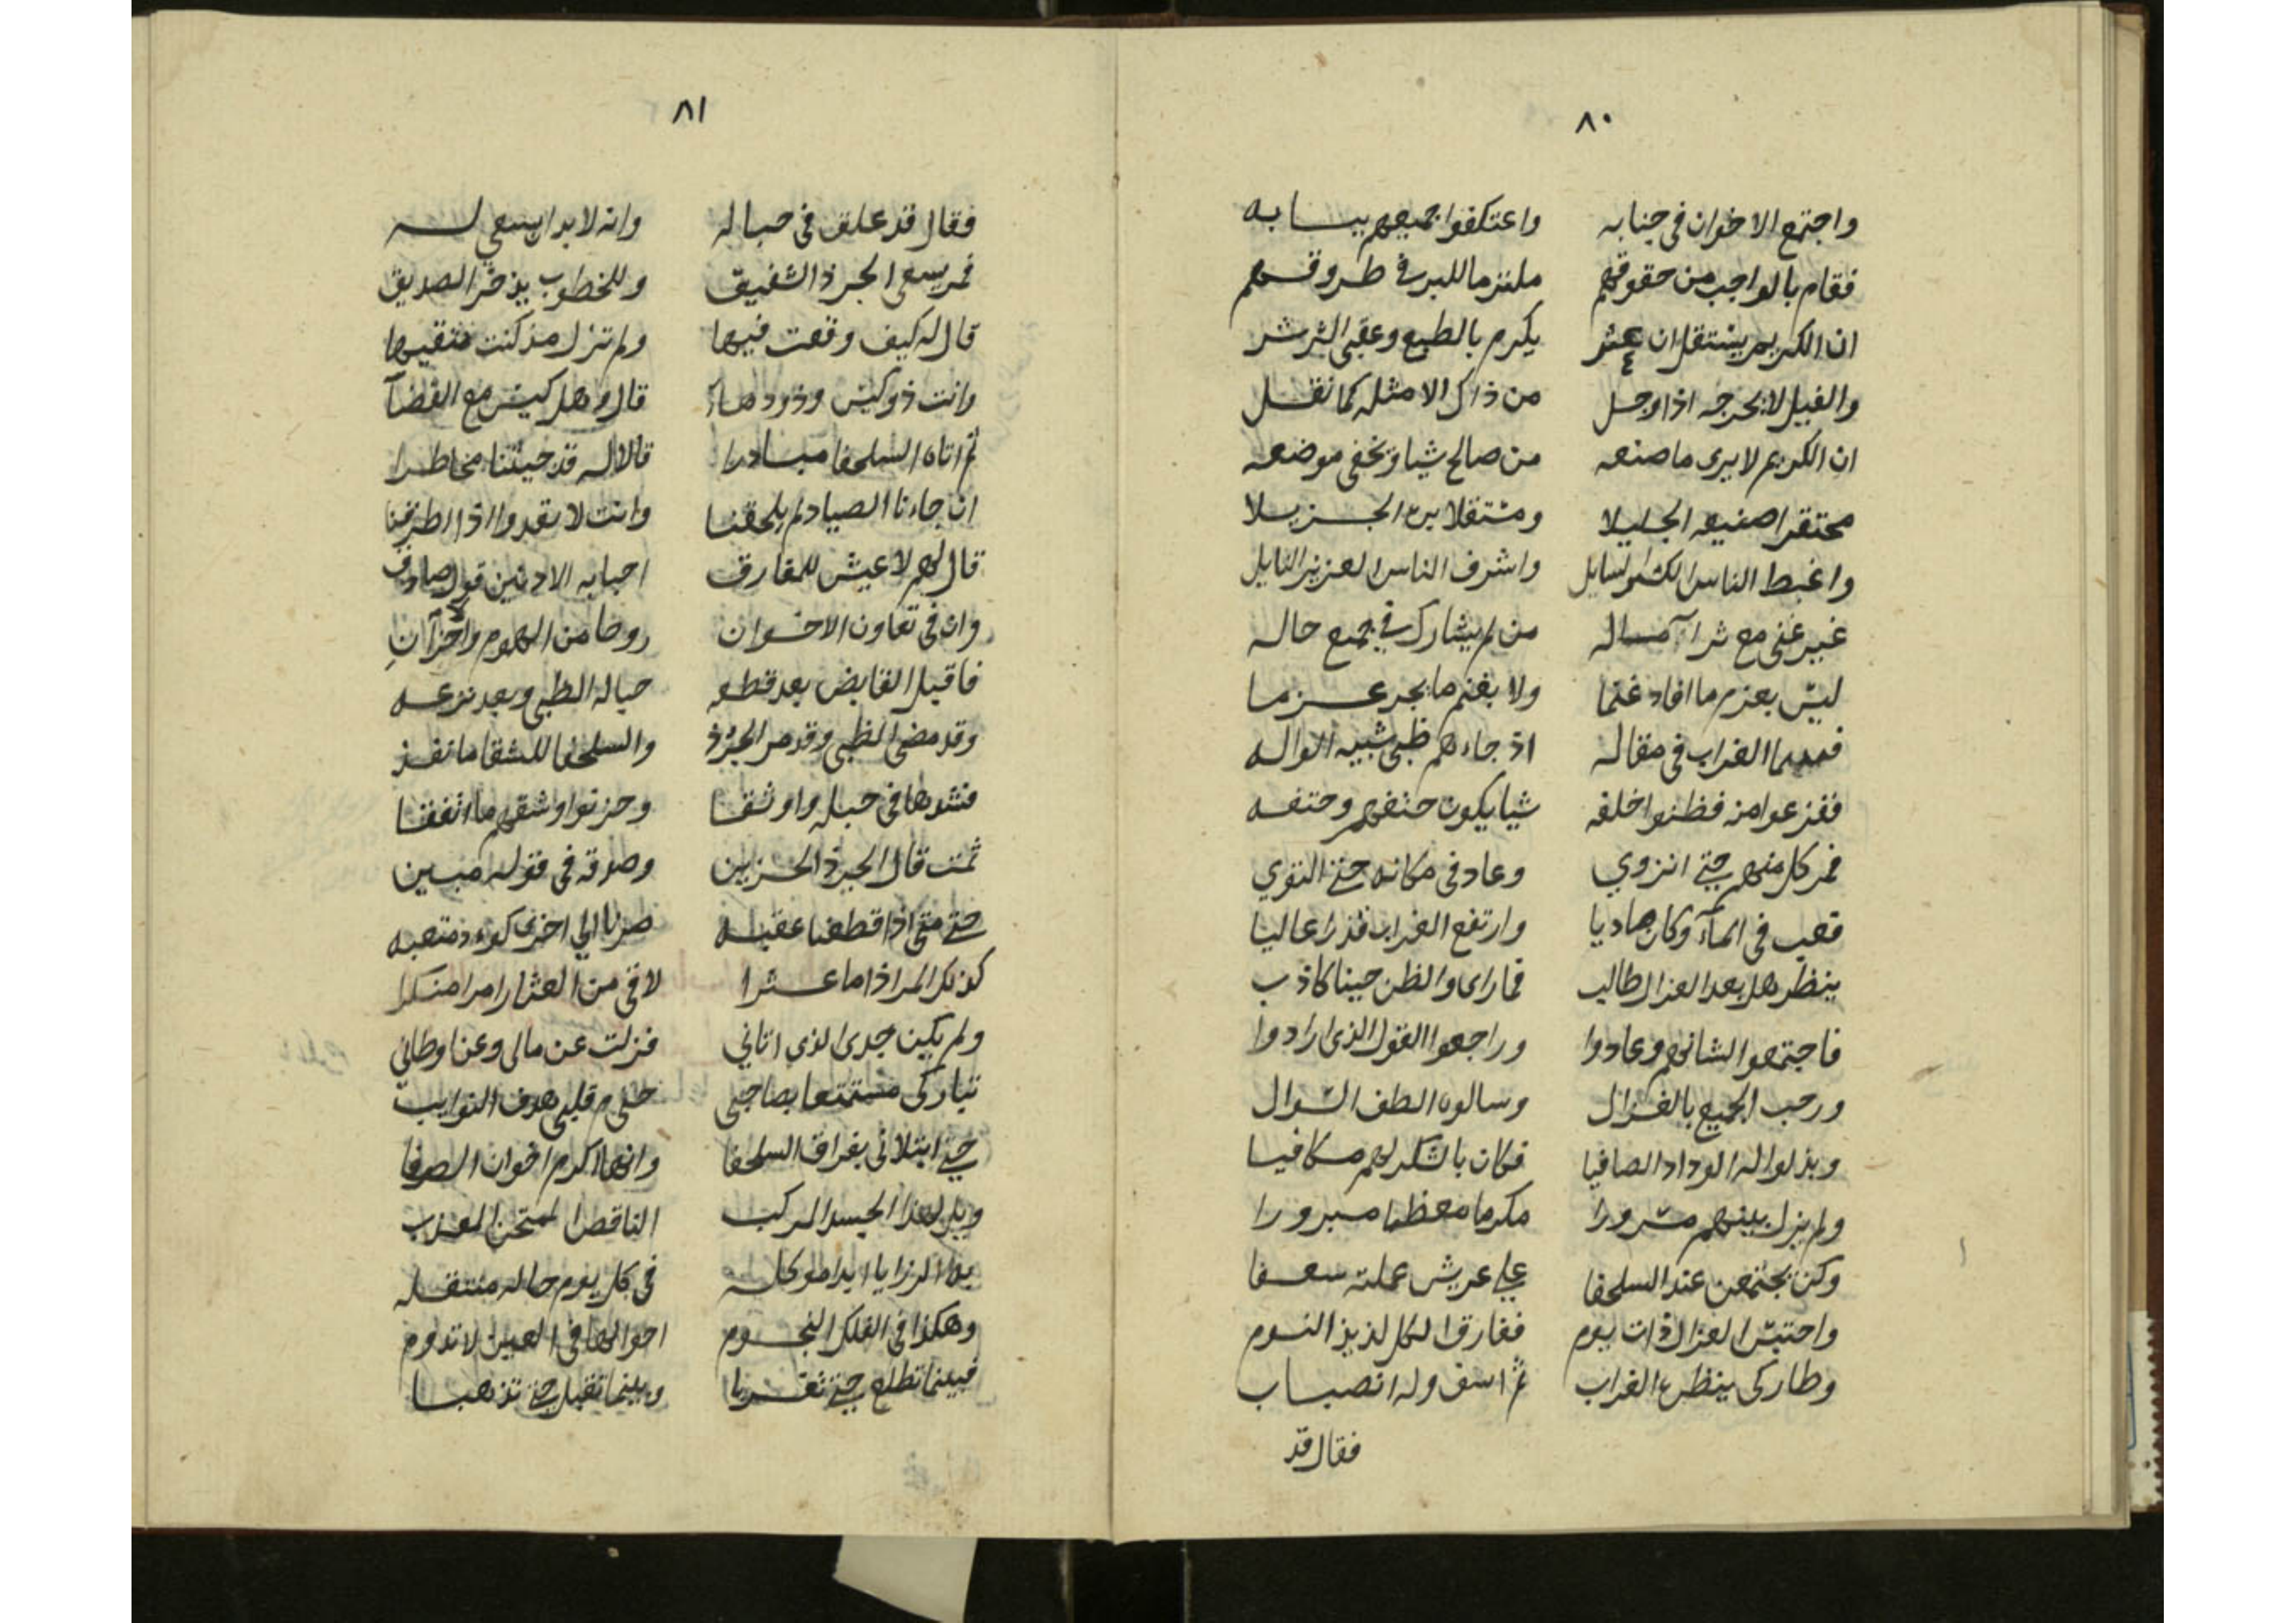 ٨٠
واجتمع الاخوان في جنابه واعتكفوا جميعهم ببابه
فقام بالواجب من حقوقهم ملتزما للبر في طروقهم
ان الكريم يستقل ان عثر يكرم بالطبع وعقبى الشر شر
والفيل لا يخرجه اذا وحل من ذاك الا مثله كما نقل
ان الكريم لا يرى ما صنعه من صالح شيا ويخفي موضعه
محتقرا صنيعه الجليلا ومستقلا بره الجزيلا
واغبط الناس الكثير السايل واشرف الناس العزيز النايل
غير غني مع ثراء ماله من لم يشارك في جميع حاله
ليس بعزم ما افاد غنما ولا بغنم ما يجر عزما
فبينما الغراب في مقاله اذ جاءهم ظبي شبيه الواله
ففزعوا منه فظنوا خلفه شيا يكون حتفهم وحتفه
فمر كل منهم حتى انزوي وعاد في مكانه حتى التوي
فغب في المآء وكان هاديا وارتفع الغراب قدرا عاليا
ينظر هل بعد الغزال طالب فما راى والظن حينا كاذب
فاجتمعوا لشانهم وعادوا وراجعوا القول الذي ارادوا
ورحب الجميع بالغزال وسالوه الطف السوال
وبذلوا له الوداد الصافيا فكان بالشكر لهم مكافيا
ولم يزل بينهم مسرورا مكرما معظما مبرورا
وكن يجتمعن عند السلحفا على عريش عملته سعفا
واحتبس الغزال ذات يوم ففارق الكل لذيذ النوم
وطار كي ينظره الغراب ثم اسف وله انصباب
فقال قد
٨١
فقال قد علق في حباله وانه لا بد ان يسعي له
فمر يسعى الجرذ الشفيق وللخطوب يذخر الصديق
قال له كيف وقعت فيها ولم تزل مذ كنت تتقيها
وانت ذو كيس وذو دهآء قال وهل كيس مع القضآ
ثم اتاه السلحفا مبادرا قالا له قد جيتنا مخاطرا
ان جاءنا الصياد لم يلحقنا وانت لا تعدوا اذا اطرقنا
قال لهم لا عيش للمفارق احبابه الادنين قول صادق
وان في تعاون الاخوان روحا من الهموم والاحزان
فاقبل القابض بعد قطعه حباله الظبي وبعد نزعه
وقد مضى الظبي وقد مر الجرذ والسلحفا للشقا ما نفذ
فشدها في حبله واوثقا وحزنوا وشقهم ما اتفقا
ثمت قال الجرذ الحزين وصدقه في قوله مبين
حتى متى اذا قطعنا عقبه صرنا الي اخرى كوود متعبه
كذلك المر اذا ما عثرا لاقى من العثار امرا منكرا
ولم يكن جدى الذي اتاني فزلت عن مالي وعن اوطاني
تباركي مستمتعا بصاحبي حلم قلبي هدف النوايب
حتى ابتلاني بفراق السلحفا وانها اكرم اخوان الصفا
ويل لهذا الجسد المركب الناقص الممتحن المعذب
به الرزايا ابدا موكله في كل يوم حاله منتقله
وهكذا في الفلك النجوم احوالها في العين لا تدوم
فبينما تطلع حتى تغربا وبينما تقبل حتى تذهبا